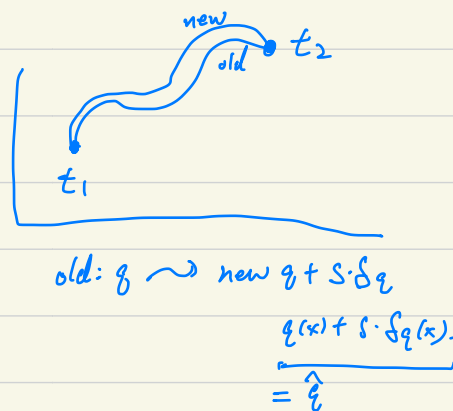 new
old
t₂
t₁
old: q ⇝ new q + S·δq
q(x) + S·δq(x)
= q̂